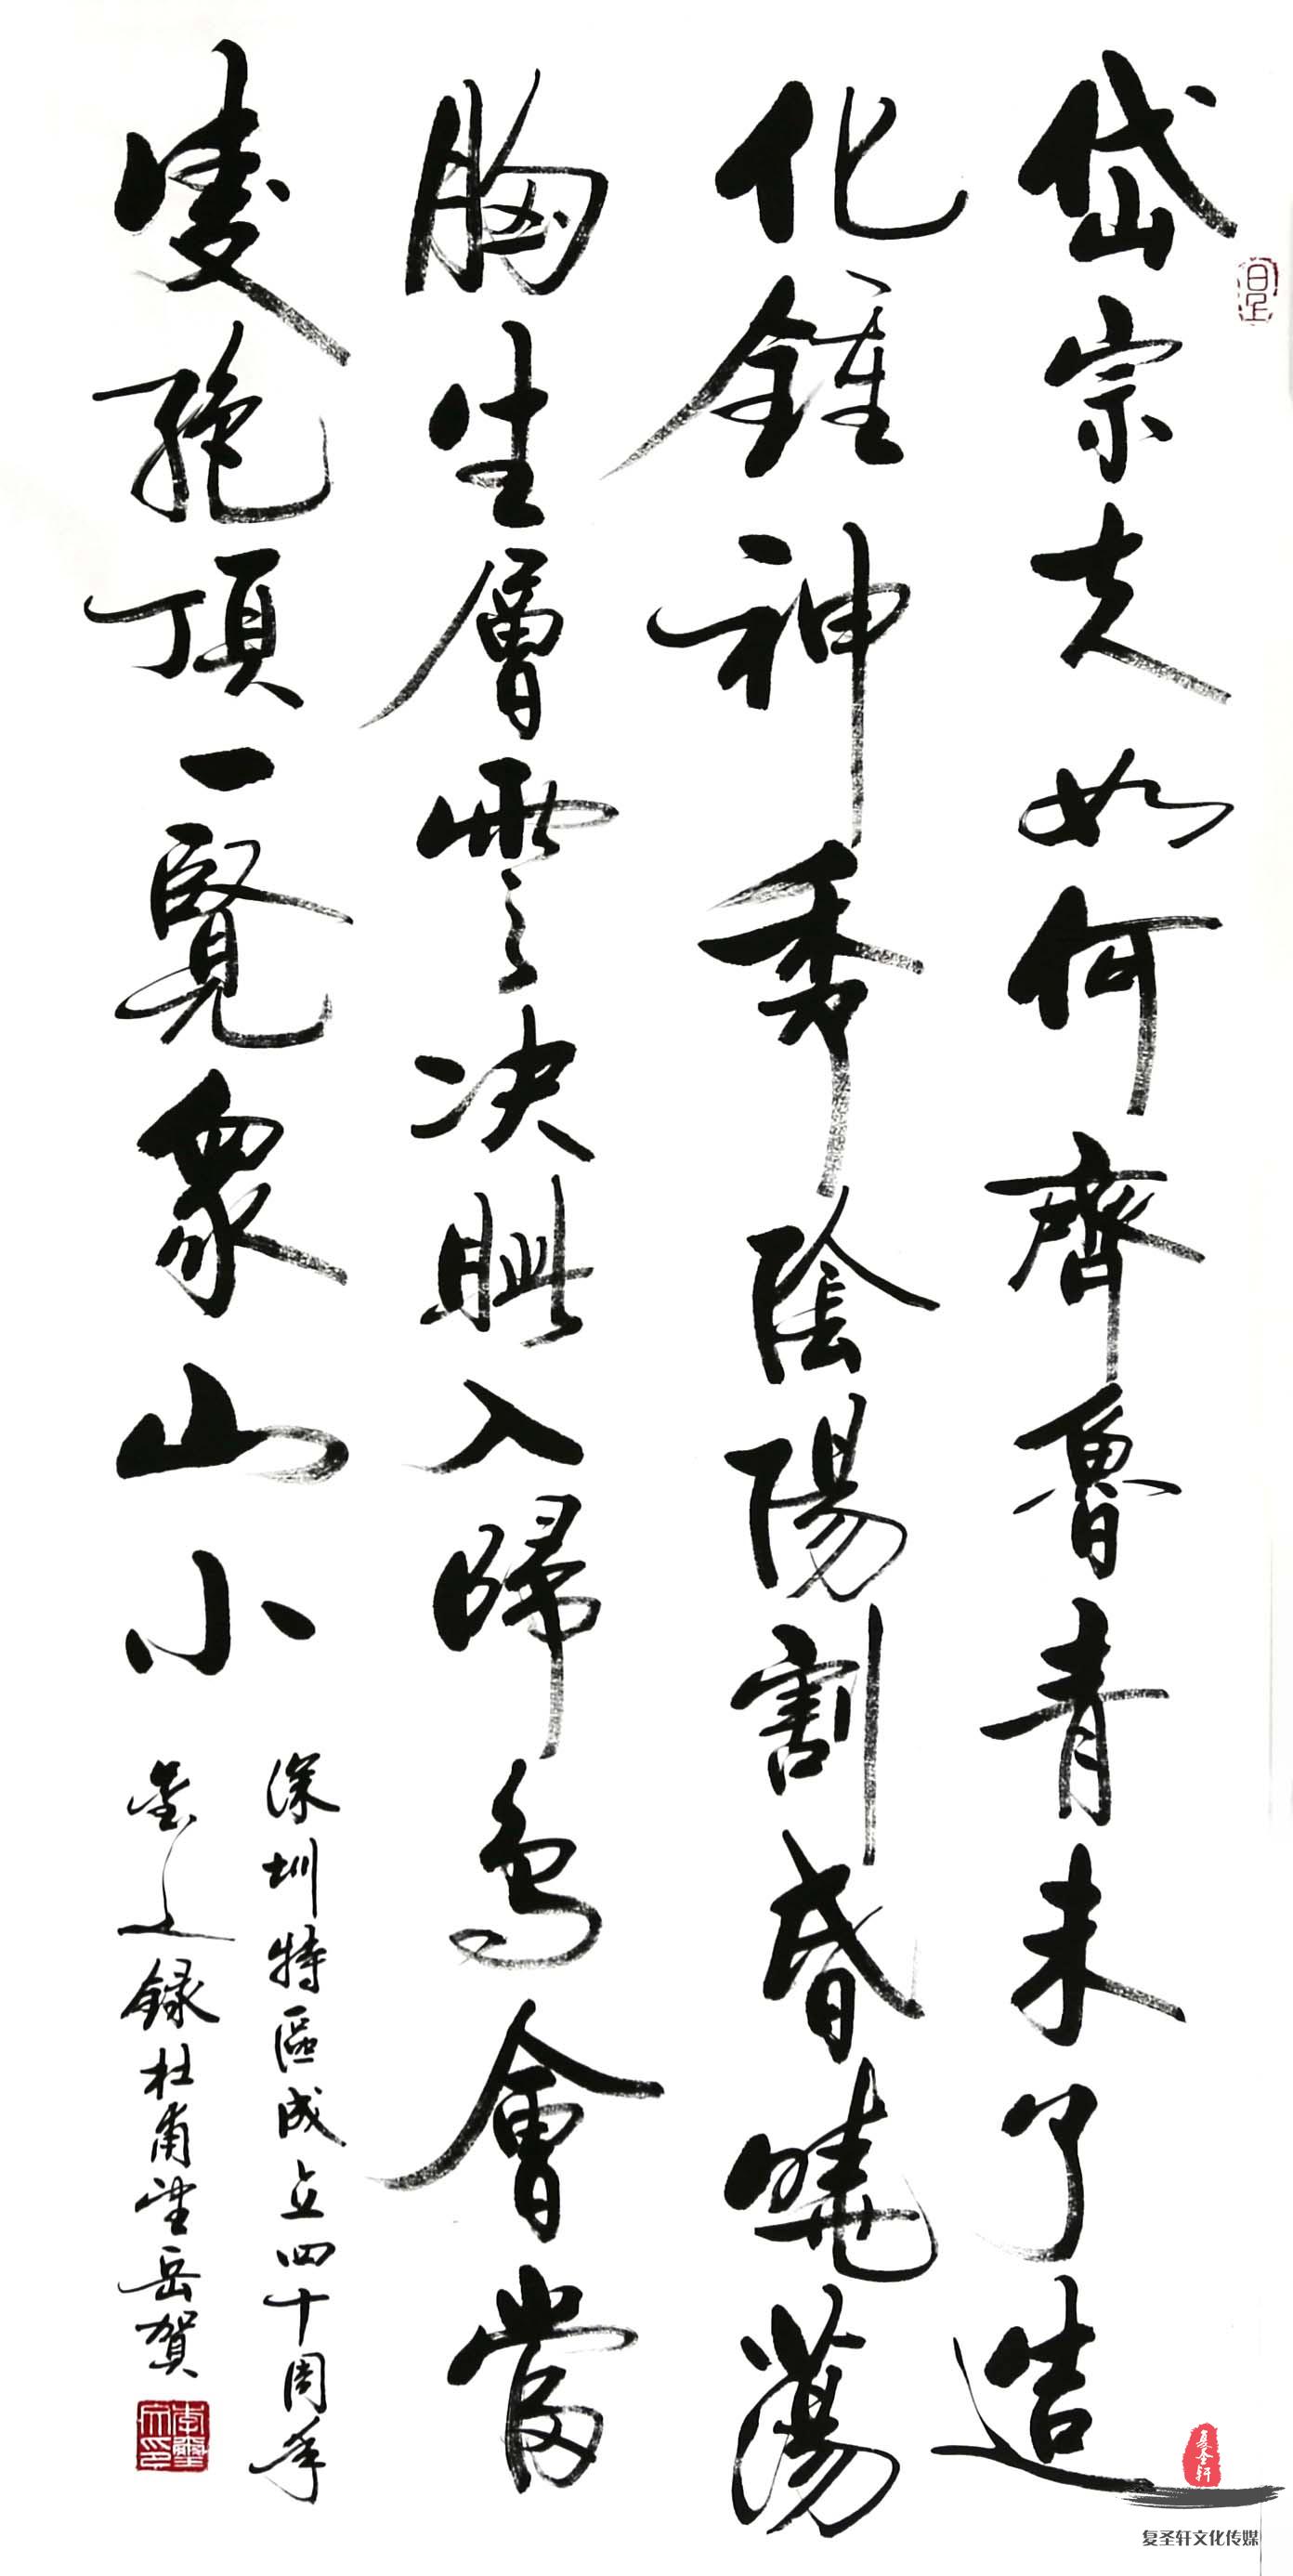 岱宗夫如何齊魯青未了造
化鍾神秀陰陽割昏曉蕩
胸生層雲决眦入歸鳥會當
凌絶頂一覽眾山小
深圳特區成立四十周年
録杜甫望岳賀
复圣轩
复圣轩文化传媒